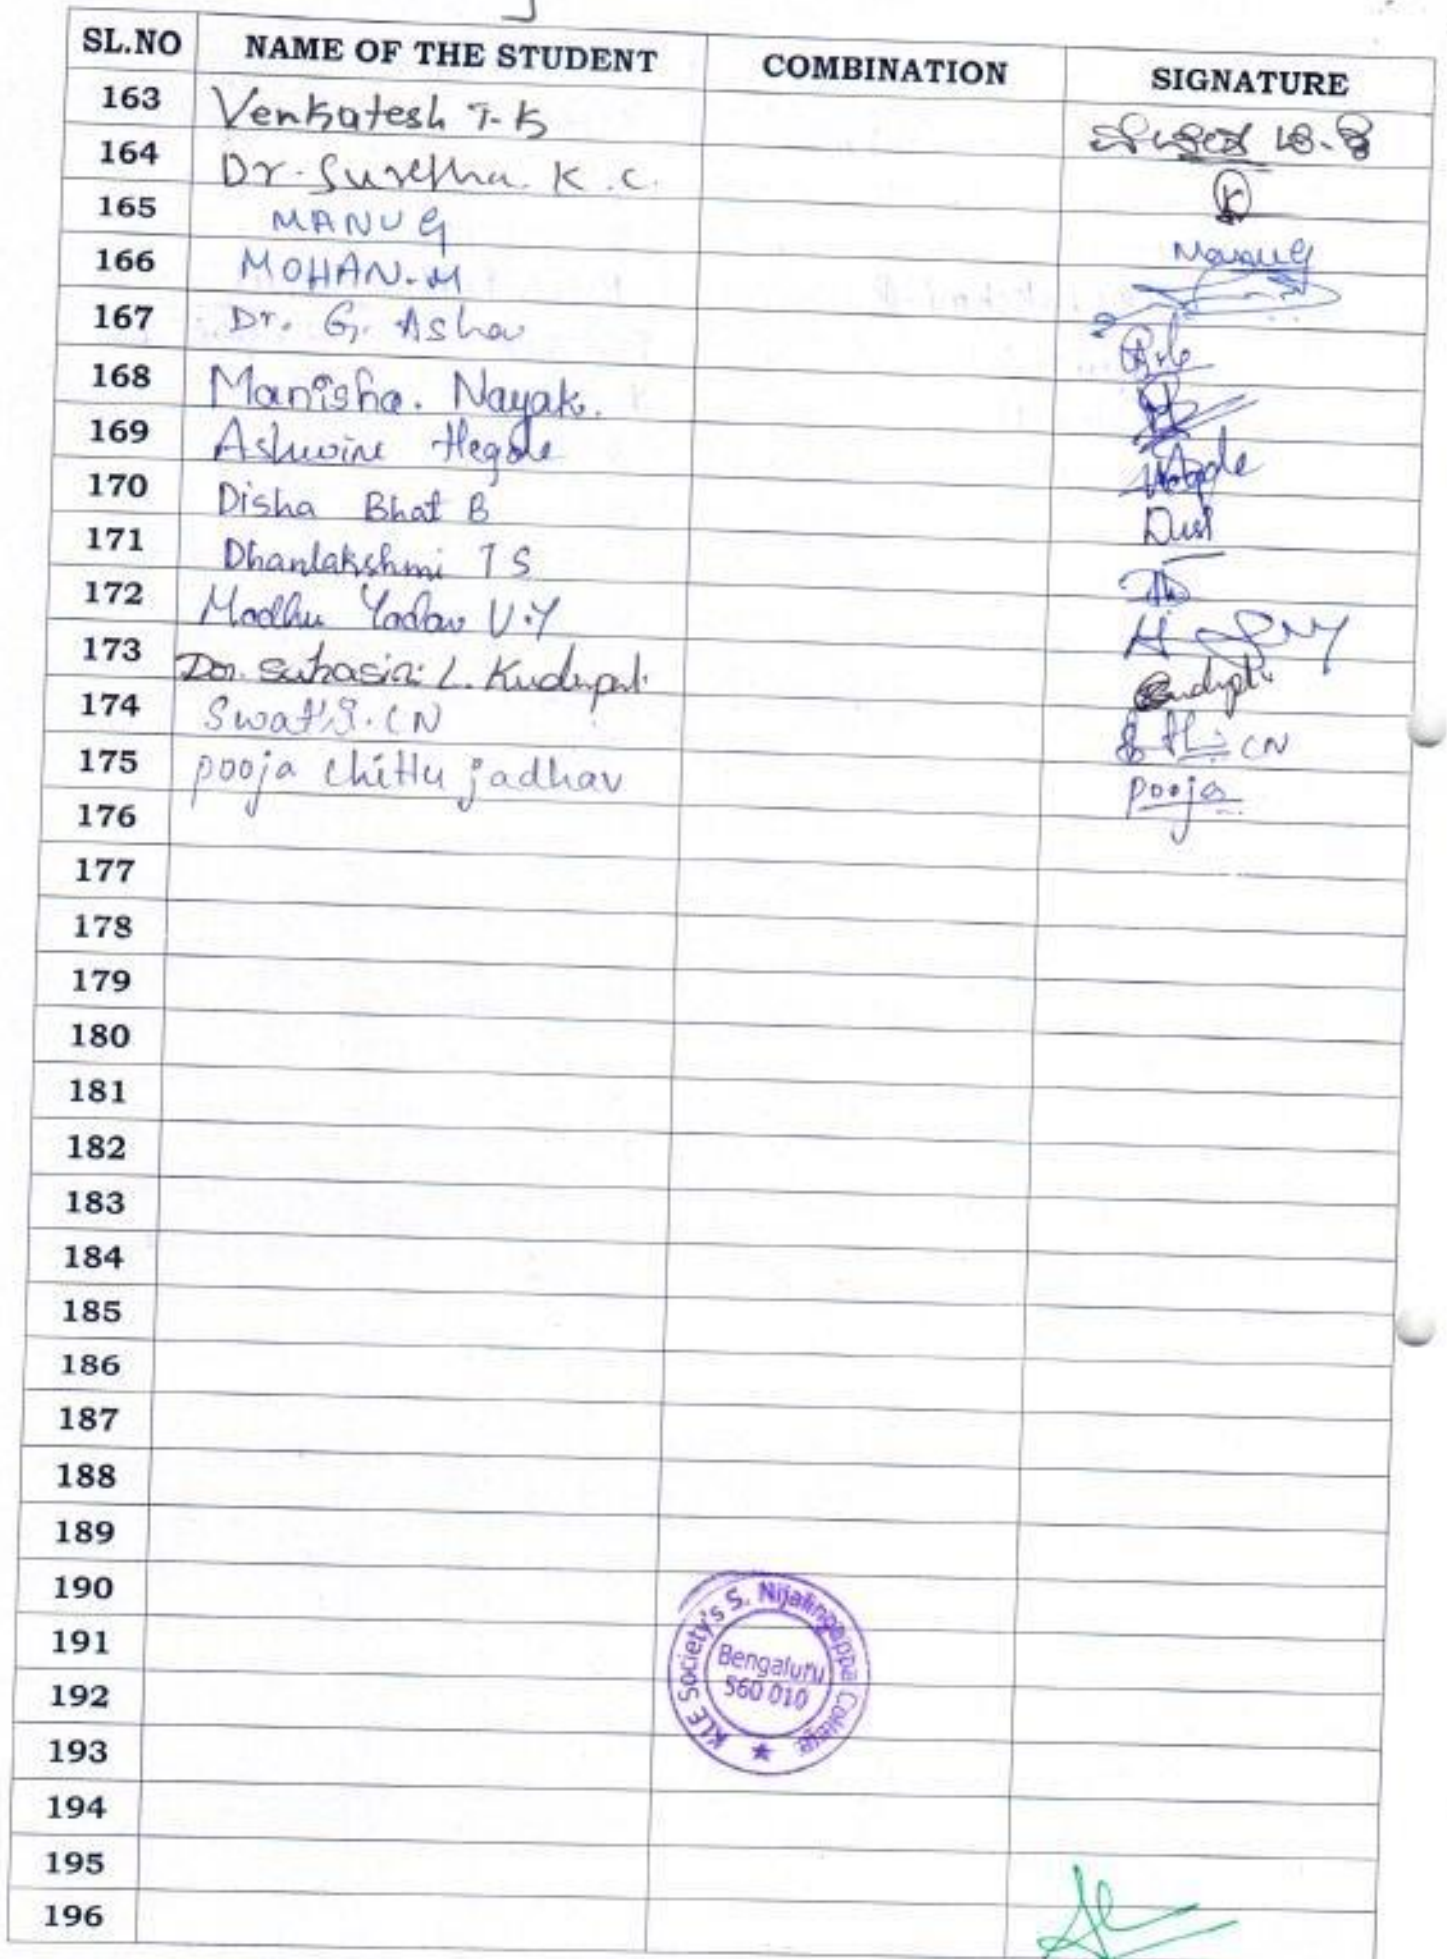 SL.NO NAME OF THE STUDENT COMBINATION SIGNATURE
163 Venkatesh T-K
164 Dr. Surekha. K.C.
165 MANU G Manu G
166 MOHAN.M
167 Dr. G. Asha
168 Manisha. Nayak.
169 Ashwini Hegde Hegde
170 Disha Bhat B
171 Dhanlakshmi T S
172 Madhu Yadav V.Y
173 Dr. Suhasini L. Kudupali
174 Swathi. CN CN
175 pooja chittu jadhav pooja
176
177
178
179
180
181
182
183
184
185
186
187
188
189
190
191
192
193
194
195
196
KLE Society's S. Nijalingappa College
Bengaluru
560 010